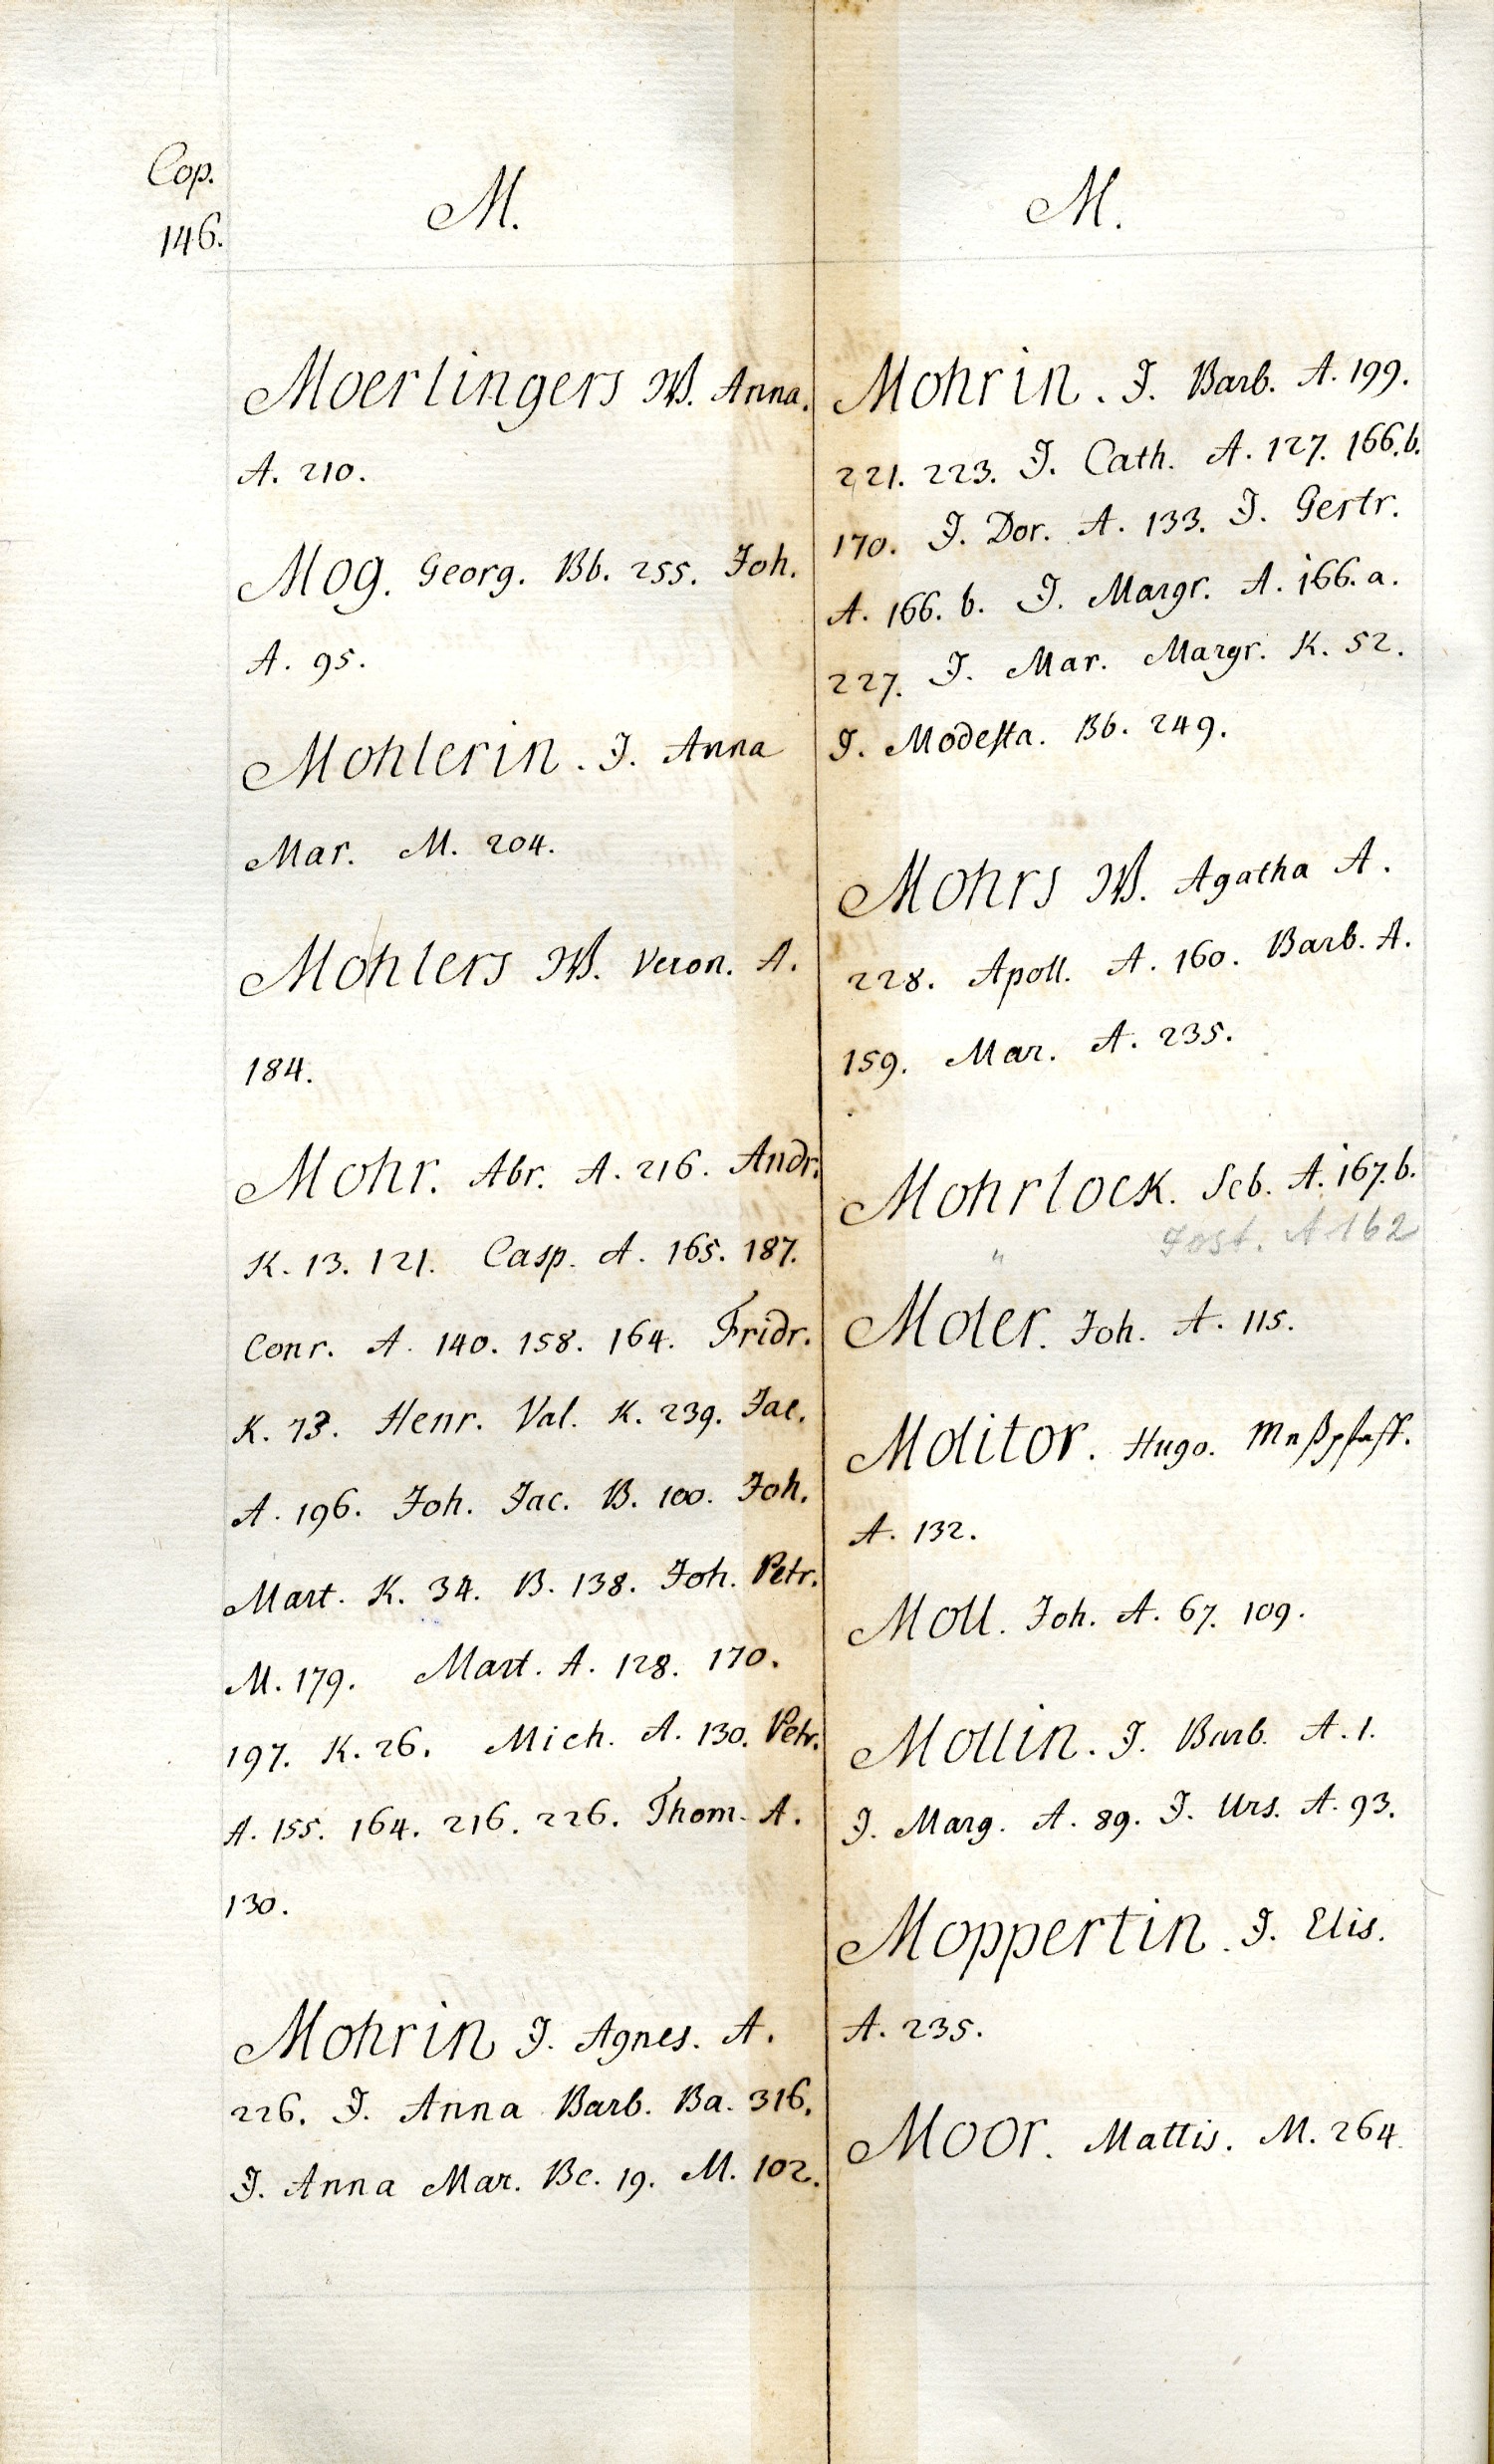 Cop.
146.
M.
Moerlingers W. Anna.
A. 210.
Mog. Georg. Bb. 255. Joh.
A. 95.
Mohlerin. J. Anna
Mar. M. 204.
Mohlers W. Veron. A.
184.
Mohr. Abr. A. 216. Andr.
K. 13. 121. Casp. A. 165. 187.
Conr. A. 140. 158. 164. Fridr.
K. 73. Henr. Val. K. 239. Jac.
A. 196. Joh. Jac. B. 100. Joh.
Mart. K. 34. B. 138. Joh. Petr.
M. 179. Mart. A. 128. 170.
197. K. 26. Mich. A. 130. Petr.
A. 155. 164. 216. 226. Thom. A.
130.
Mohrin J. Agnes. A.
226. J. Anna Barb. Ba. 316.
J. Anna Mar. Bc. 19. M. 102.
M.
Mohrin. J. Barb. A. 199.
221. 223. J. Cath. A. 127. 166.b.
170. J. Dor. A. 133. J. Gertr.
A. 166. b. J. Margr. A. 166. a.
227. J. Mar. Margr. K. 52.
J. Modesta. Bb. 249.
Mohrs W. Agatha A.
228. Apoll. A. 160. Barb. A.
159. Mar. A. 235.
Mohrlock. Seb. A. 167. b.
" Jost. A 162
Moler. Joh. A. 115.
Molitor. Hugo. Meßpfaff.
A. 132.
Moll. Joh. A. 67. 109.
Mollin. J. Barb. A. 1.
J. Marg. A. 89. J. Urs. A. 93.
Moppertin. J. Elis.
A. 235.
Moor. Mattis. M. 264.